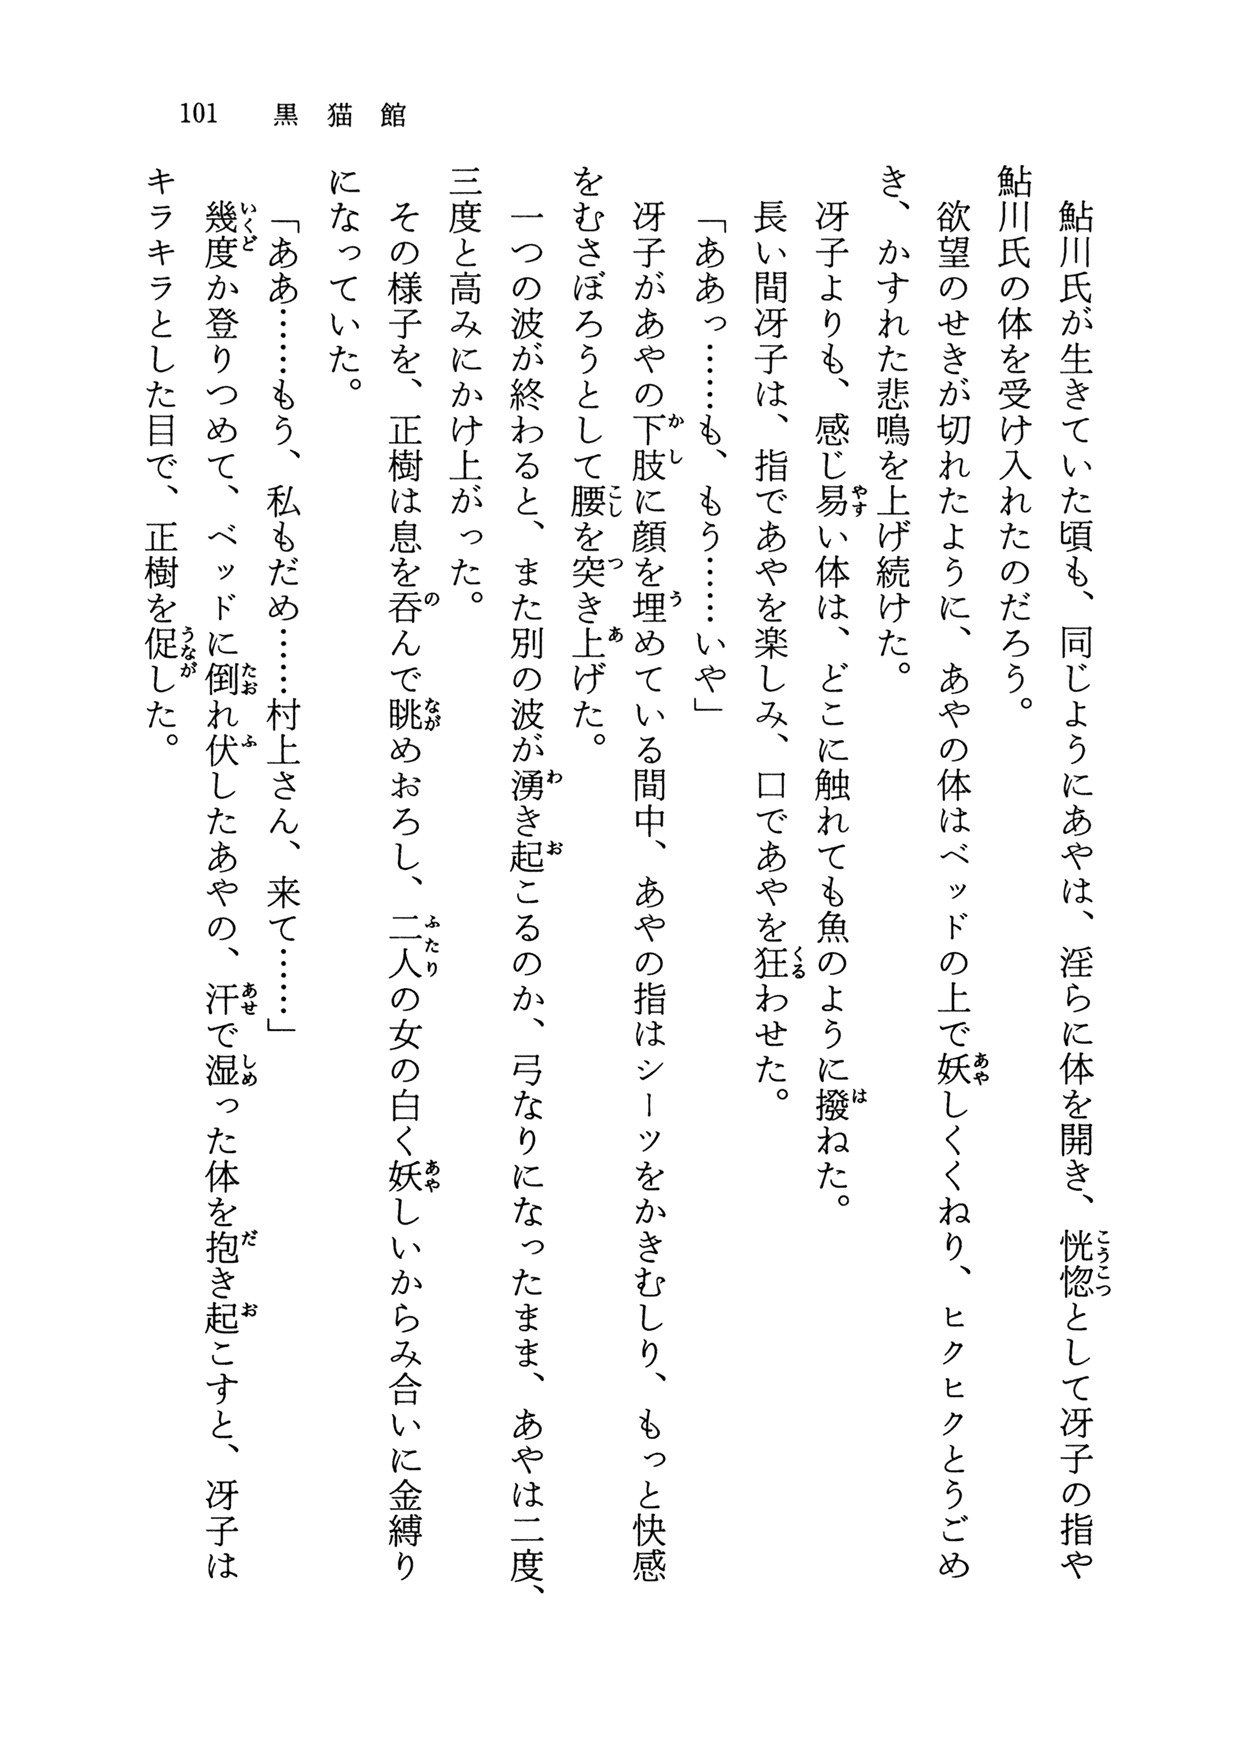 101 黒猫館
鮎川氏が生きていた頃も、同じようにあやは、淫らに体を開き、恍惚として冴子の指や
鮎川氏の体を受け入れたのだろう。
欲望のせきが切れたように、あやの体はベッドの上で妖しくくねり、ヒクヒクとうごめ
き、かすれた悲鳴を上げ続けた。
冴子よりも、感じ易い体は、どこに触れても魚のように撥ねた。
長い間冴子は、指であやを楽しみ、口であやを狂わせた。
「ああっ……も、もう……いや」
冴子があやの下肢に顔を埋めている間中、あやの指はシーツをかきむしり、もっと快感
をむさぼろうとして腰を突き上げた。
一つの波が終わると、また別の波が湧き起こるのか、弓なりになったまま、あやは二度、
三度と高みにかけ上がった。
その様子を、正樹は息を呑んで眺めおろし、二人の女の白く妖しいからみ合いに金縛り
になっていた。
「ああ……もう、私もだめ……村上さん、来て……」
幾度か登りつめて、ベッドに倒れ伏したあやの、汗で湿った体を抱き起こすと、冴子は
キラキラとした目で、正樹を促した。